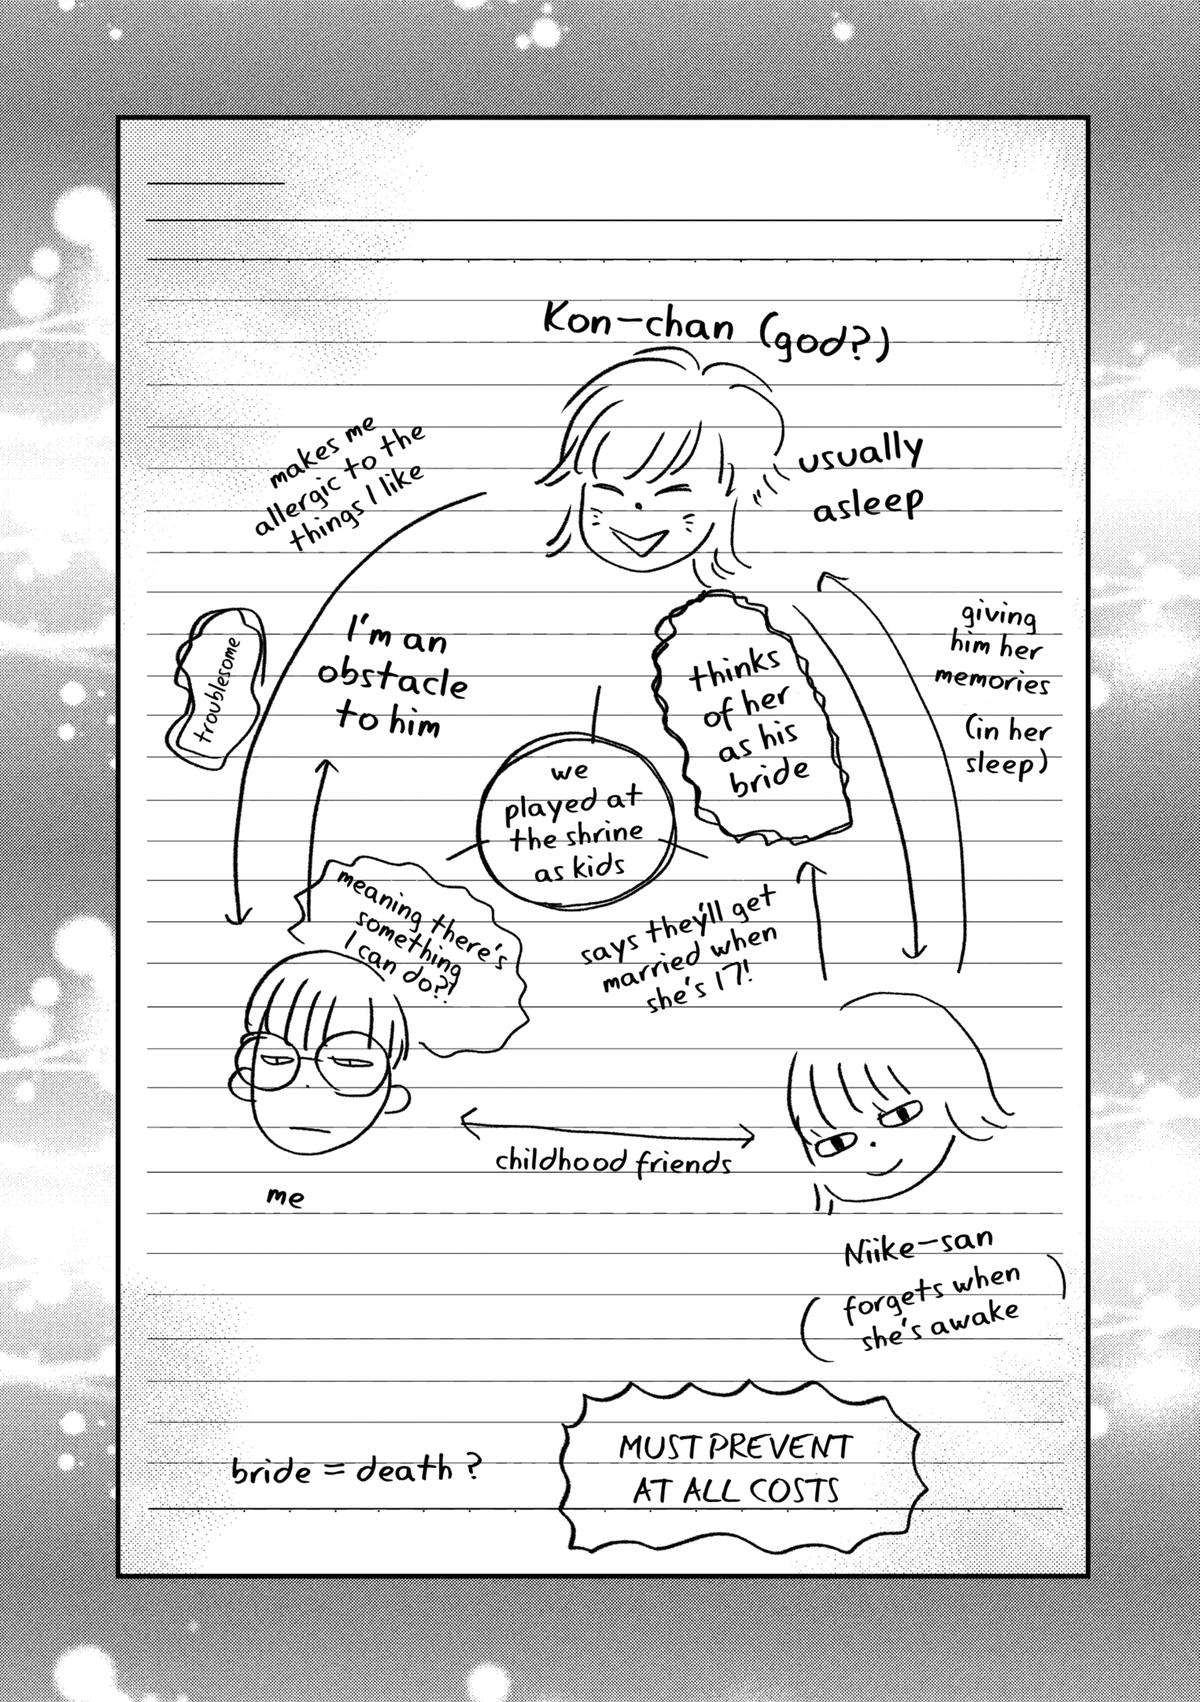 Kon-chan (god?)
usually
asleep
makes me
allergic to the
things I like
troublesome
I'm an
obstacle
to him
thinks
of her
as his
bride
giving
him her
memories
(in her
sleep)
we
played at
the shrine
as kids
meaning there's
something
I can do?!
says they'll get
married when
she's 17!
childhood friends
me
Niike-san
(forgets when
she's awake)
bride = death?
MUST PREVENT
AT ALL COSTS